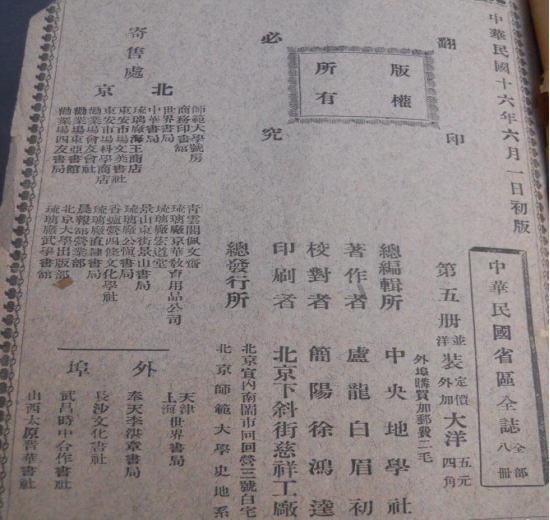 中華民國十六年六月一日初版
翻印必究
版權所有
中華民國省區全誌 全部八冊
第五冊 並裝定價大洋五元
洋裝外加四角
外埠購買加郵費二毛
總編輯所 中央地學社
著作者 盧龍白眉初
校對者 簡陽徐鴻逵
印刷者 北京下斜街慈祥工廠
總發行所 北京宣內南鬧市回回營三號白宅
北京師範大學史地系
寄售處
北京
師範大學號房
商務印書館
世界書局
中華書局
琉璃廠海王商店
東安市場文美書社
東安市場科學商店
勸業場會友會社
勸業場東亞書館
勸業場四友書局
青雲閣佩文齋
琉璃廠京華教育用品公司
琉璃廠宏道堂
景山東街景山書局
琉璃廠公慎書局
香爐營四條文化學社
琉璃廠直隸書局
晨報館營業部
北京大學出版部
琉璃廠武學書館
外埠
天津
上海世界書局
奉天李湛章書局
長沙文化書社
武昌時中合作書社
山西太原晉華書社